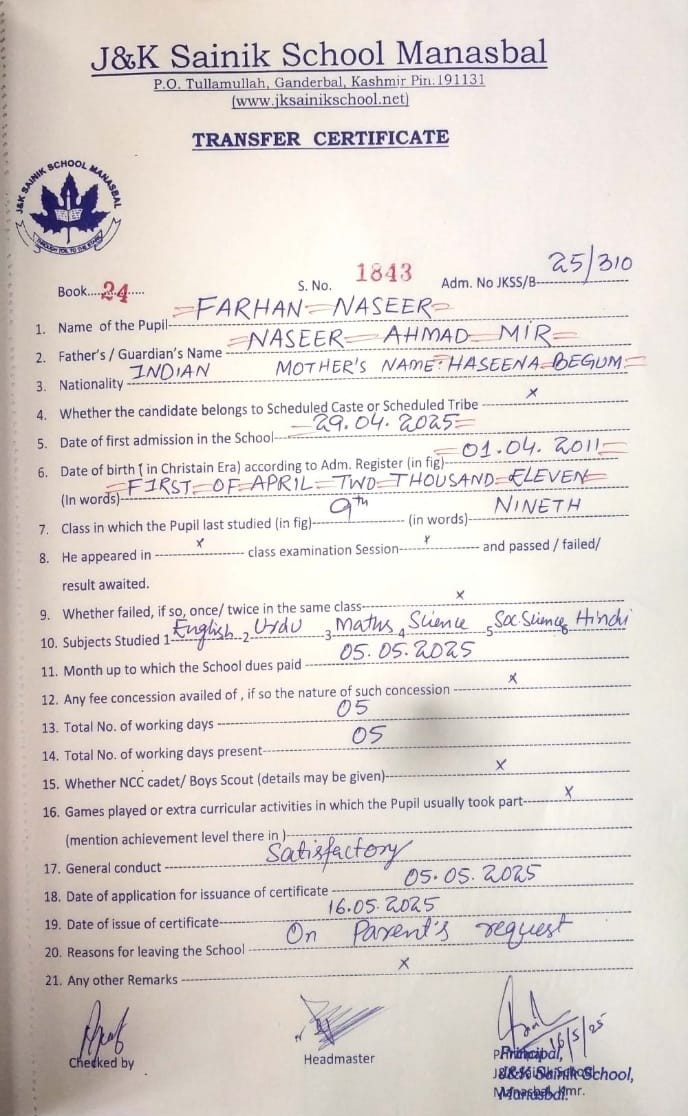 J&K Sainik School Manasbal
P.O. Tullamullah, Ganderbal, Kashmir Pin.191131
(www.jksainikschool.net)
TRANSFER CERTIFICATE
J&K SAINIK SCHOOL MANASBAL
Book....24.... S. No. 1843 Adm. No JKSS/B- 25/310
1. Name of the Pupil- FARHAN NASEER
2. Father's / Guardian's Name NASEER AHMAD MIR
3. Nationality INDIAN MOTHER'S NAME: HASEENA BEGUM
4. Whether the candidate belongs to Scheduled Caste or Scheduled Tribe x
5. Date of first admission in the School- 29.04.2025
6. Date of birth ( in Christain Era) according to Adm. Register (in fig)- 01.04.2011
(In words)- FIRST OF APRIL TWO THOUSAND ELEVEN
7. Class in which the Pupil last studied (in fig)- 9th (in words)- NINETH
8. He appeared in x class examination Session- x and passed / failed/
result awaited.
9. Whether failed, if so, once/ twice in the same class- x
10. Subjects Studied 1 English 2 Urdu 3 Maths 4 Science 5 Soc. Science 6 Hindi
11. Month up to which the School dues paid 05.05.2025
12. Any fee concession availed of , if so the nature of such concession x
13. Total No. of working days 05
14. Total No. of working days present- 05
15. Whether NCC cadet/ Boys Scout (details may be given)- x
16. Games played or extra curricular activities in which the Pupil usually took part- x
(mention achievement level there in )-
17. General conduct Satisfactory
18. Date of application for issuance of certificate 05.05.2025
19. Date of issue of certificate- 16.05.2025
20. Reasons for leaving the School On Parent's request
21. Any other Remarks x
16/5/25
Checked by Headmaster Principal,
J&K Sainik School,
Manasbal